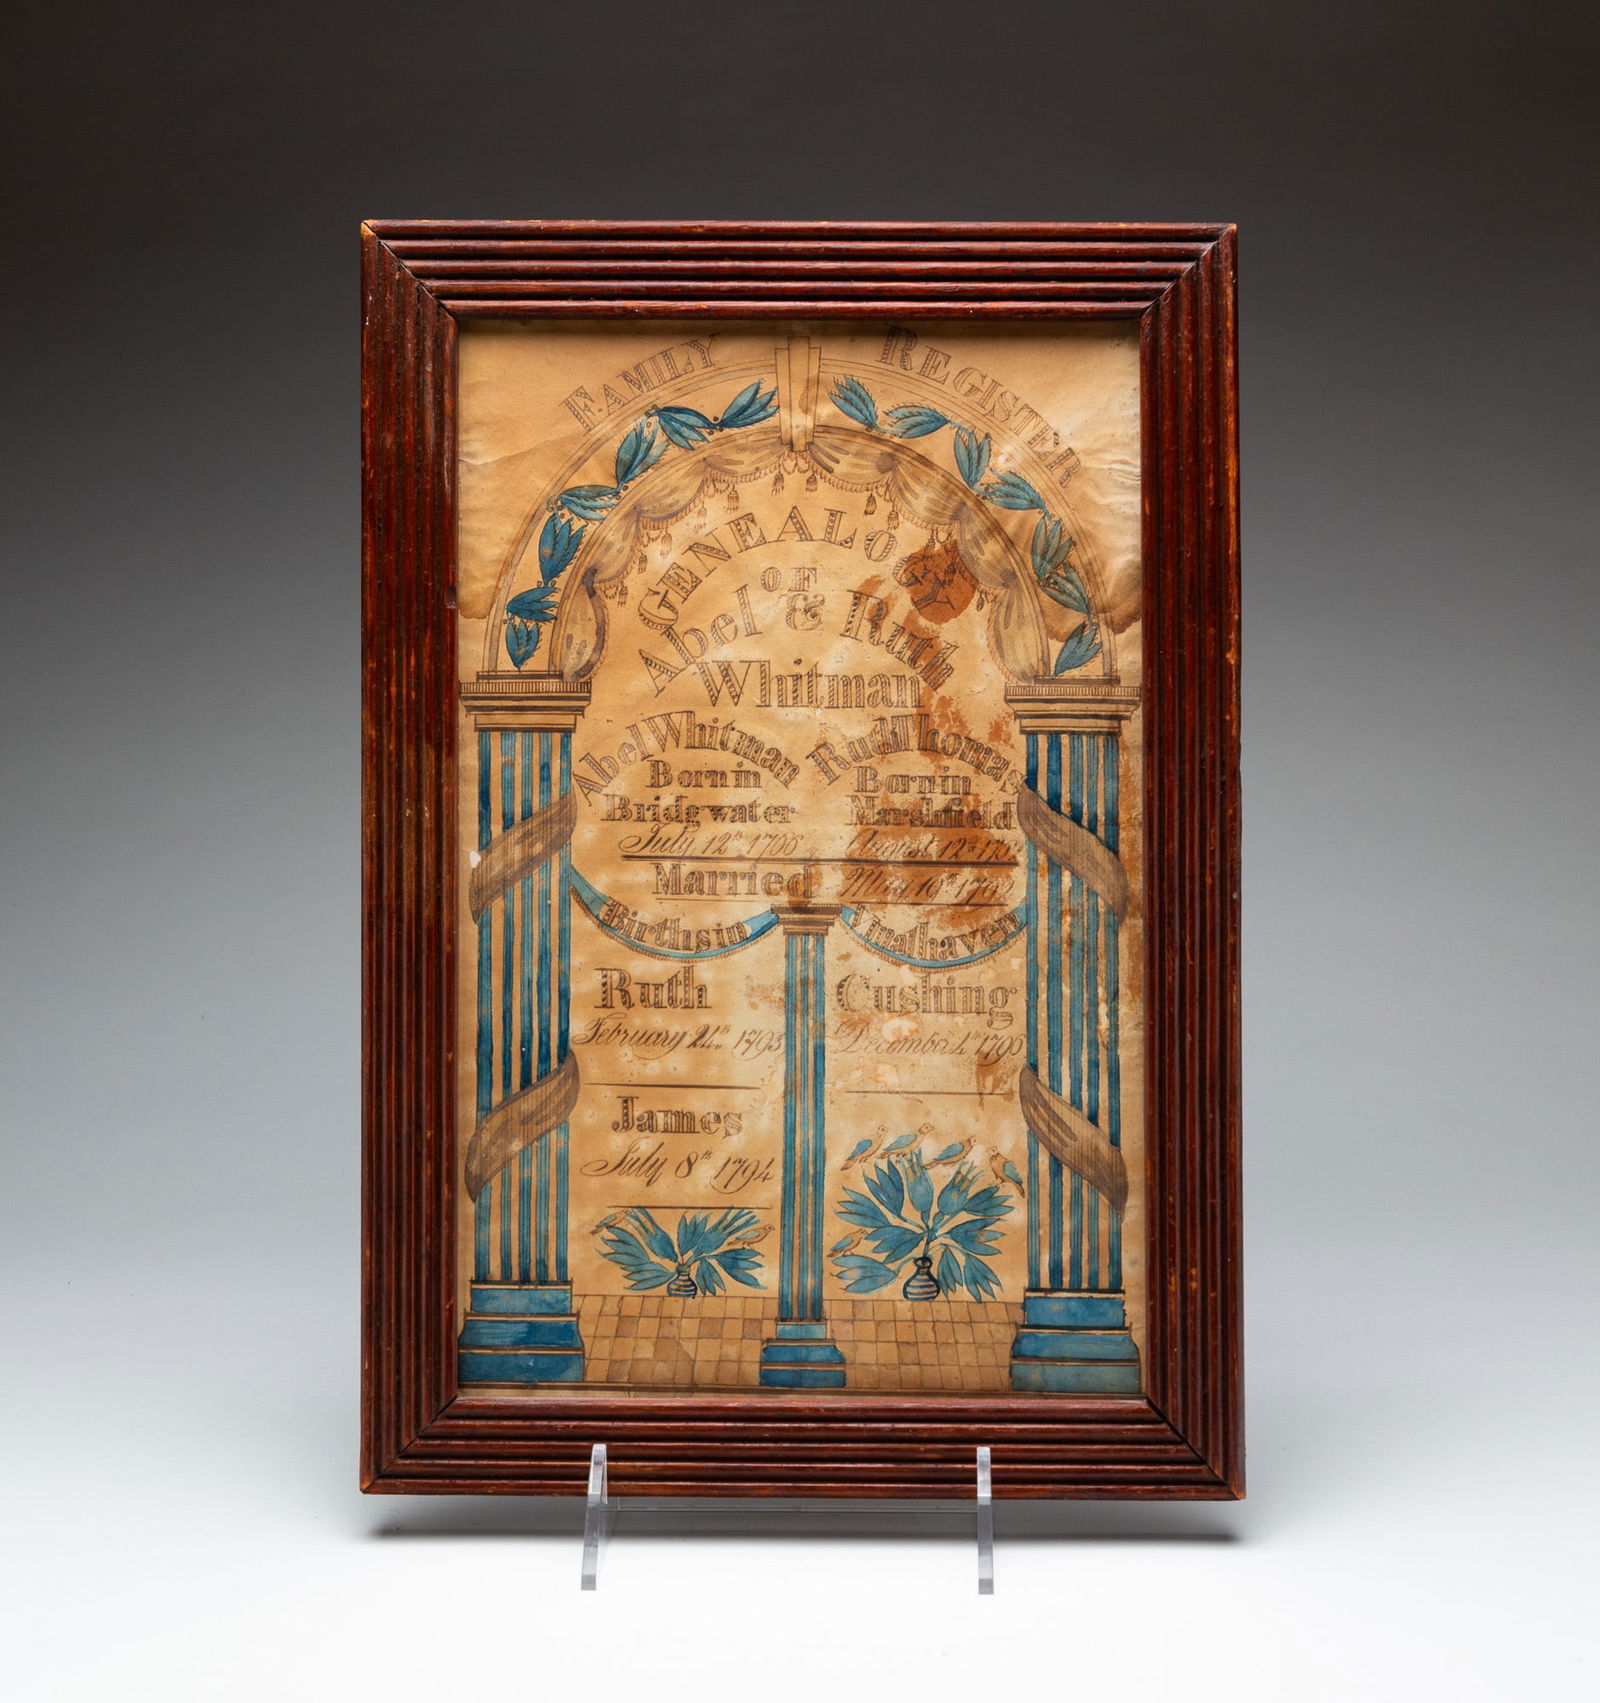 FAMILY REGISTER
GENEALOGY
OF
Abel & Ruth
Whitman
Abel Whitman
Born in
Bridgwater
July 12th
Ruth Thomas
Born in
Marshfield
August 12th
Married May 10th 1792
Births in Vinalhaven
Ruth
February 24th 1793
Cushing
December 4th 1796
James
July 8th 1794